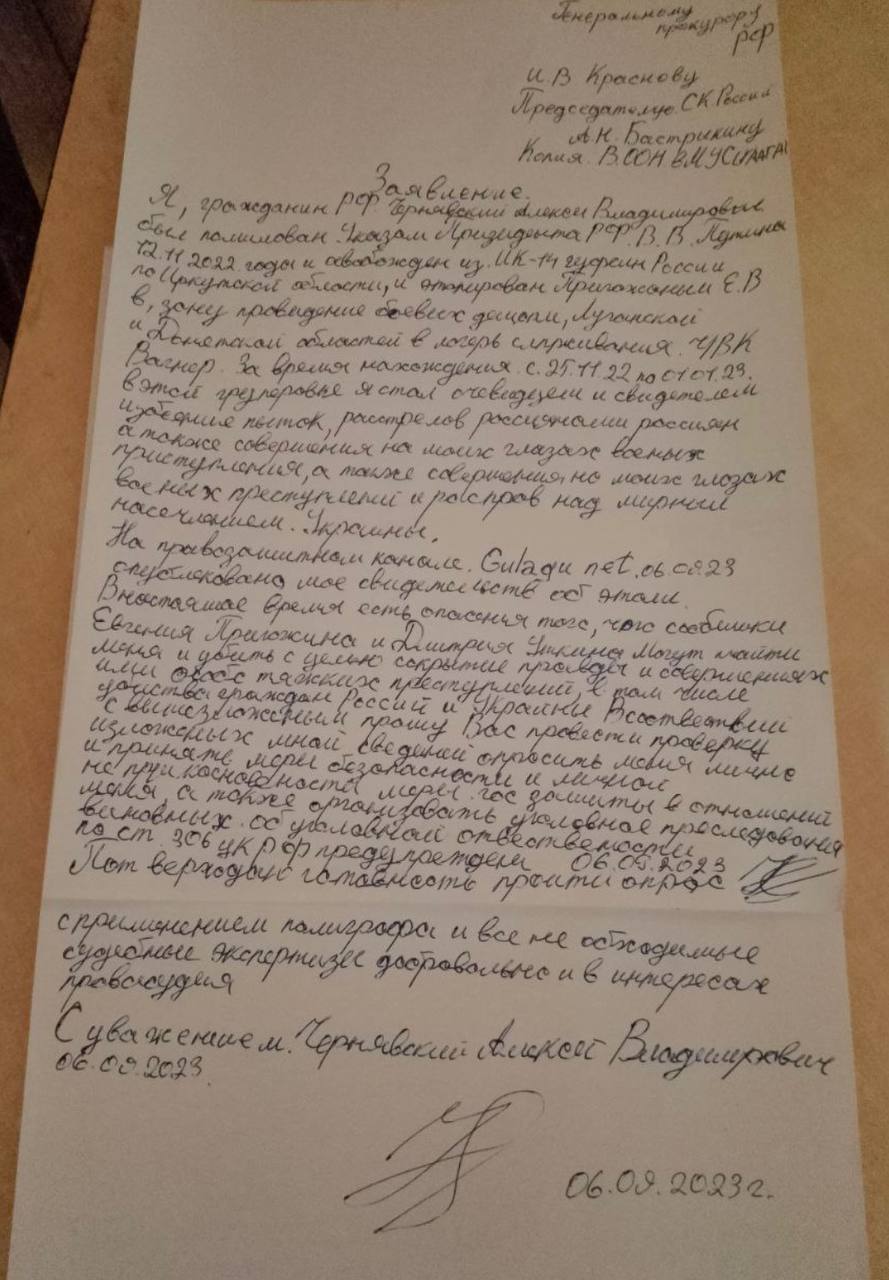 Генеральному
прокурору
РФ
И.В Краснову
Председателю СК России
А.Н. Бастрикину
Копия. В ООН в МУС(ГААГА)
Заявление.
Я, гражданин РФ. Чернявский Алексей Владимирович
был помилован Указам Призидента РФ. В. В. Путина
12.11.2022 годы и освобожден из. ИК-14 гуфсин России
по Иркутской области, и этапирован Пригожиным Е.В
в, зону провидение боевих
и Донетской областей в логерь ЧВК
Вагнер. За время нахождения. с. 25.11.22 по 01.01.23.
в этой я стал очевидцем и свидетелем
пыток, расстрелов россиянами россиян
а также совершения на моих глазах военых
приступления, а также совершения на моих глазах
военых преступлений и распров над мирным
населением. Украины.
На правозашитном канале. Gulagu net. 06.09.23
опубликовано мое об этом.
В настояшае время есть опасения того, что
Евгения Пригожина и Дмитрия Уткина могут найти
меня и убить с целью сокрытие правды и совершенных
ими особо тяжких преступлений, в том числе
убийства граждан России и Украины
с вышеизложеным прошу Вас провести проверку
изложеных мной сведений опросить меня лично
и принять меры безопасности и личной
меры гос зашиты в отношений
меня, а также организовать уголовное преследования
виновных. об уголовной
по ст. 306 ук РФ предупрежден 06.09.2023
Потверждаю готовность пройти опрос
с применением полиграфа и все не обходимые
судебные экспертизы добровольно и в интересах
правосудия
С уважением. Чернявский Алексей Владимирович
06.09.2023.
06.09.2023г.